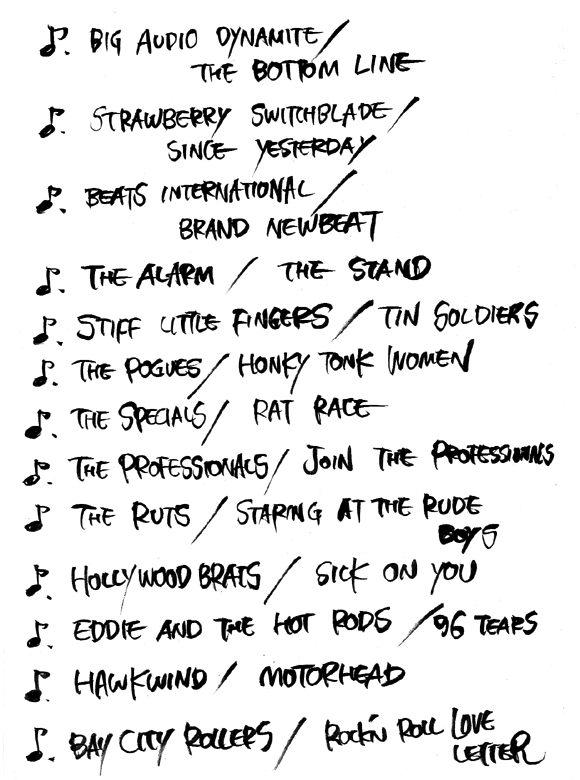 ♪. BIG AUDIO DYNAMITE /
THE BOTTOM LINE
♪. STRAWBERRY SWITCHBLADE /
SINCE YESTERDAY
♪. BEATS INTERNATIONAL /
BRAND NEWBEAT
♪. THE ALARM / THE STAND
♪. STIFF LITTLE FINGERS / TIN SOLDIERS
♪. THE POGUES / HONKY TONK WOMEN
♪. THE SPECIALS / RAT RACE
♪. THE PROFESSIONALS / JOIN THE PROFESSIONALS
♪ THE RUTS / STARING AT THE RUDE
BOYS
♪. HOLLYWOOD BRATS / SICK ON YOU
♪. EDDIE AND THE HOT RODS / 96 TEARS
♪. HAWKWIND / MOTORHEAD
♪. BAY CITY ROLLERS / ROCK'N ROLL LOVE
LETTER